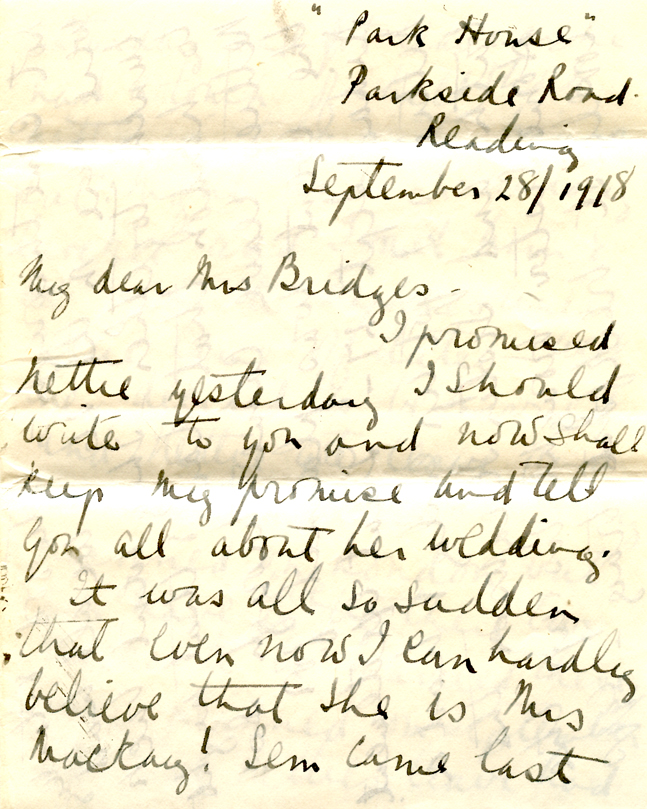 "Park House"
Parkside Road.
Reading
September 28/1918
My dear Mrs Bridges -
I promised
Nettie yesterday I should
write to you and now shall
keep my promise and tell
you all about her wedding.
It was all so sudden
that even now I can hardly
believe that she is Mrs
Mackay! Sem came last